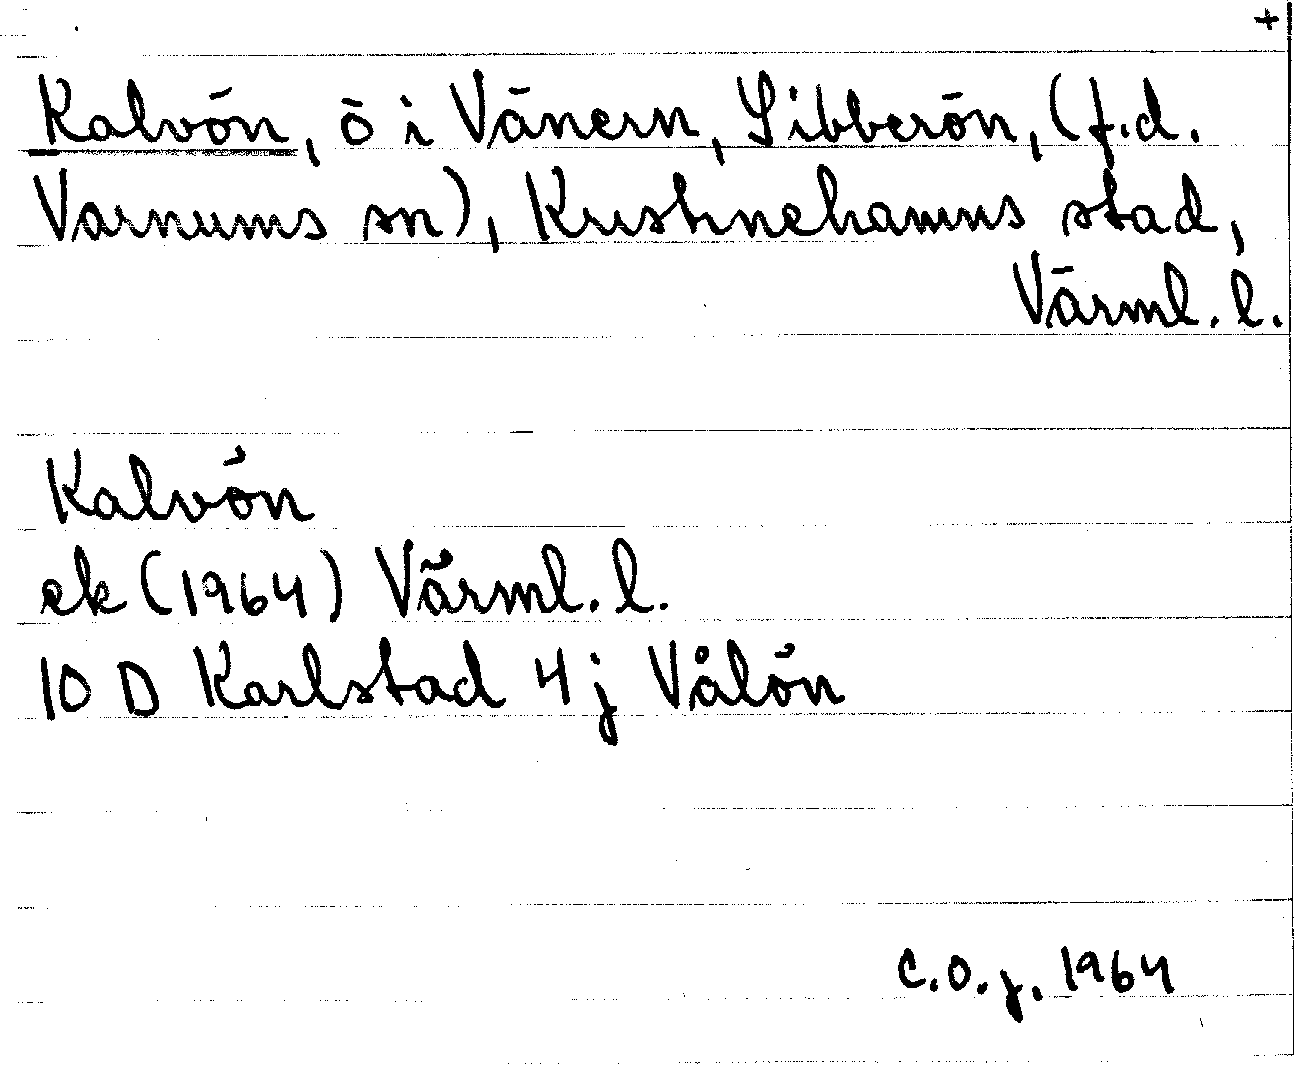 +
Kalvön, ö i Vänern, Sibberön, (f.d.
Varnums sn), Kristinehamns stad,
Värml. l.
Kalvön
ek (1964) Värml. l.
10 D Karlstad 4j Vålön
C.O.J. 1964